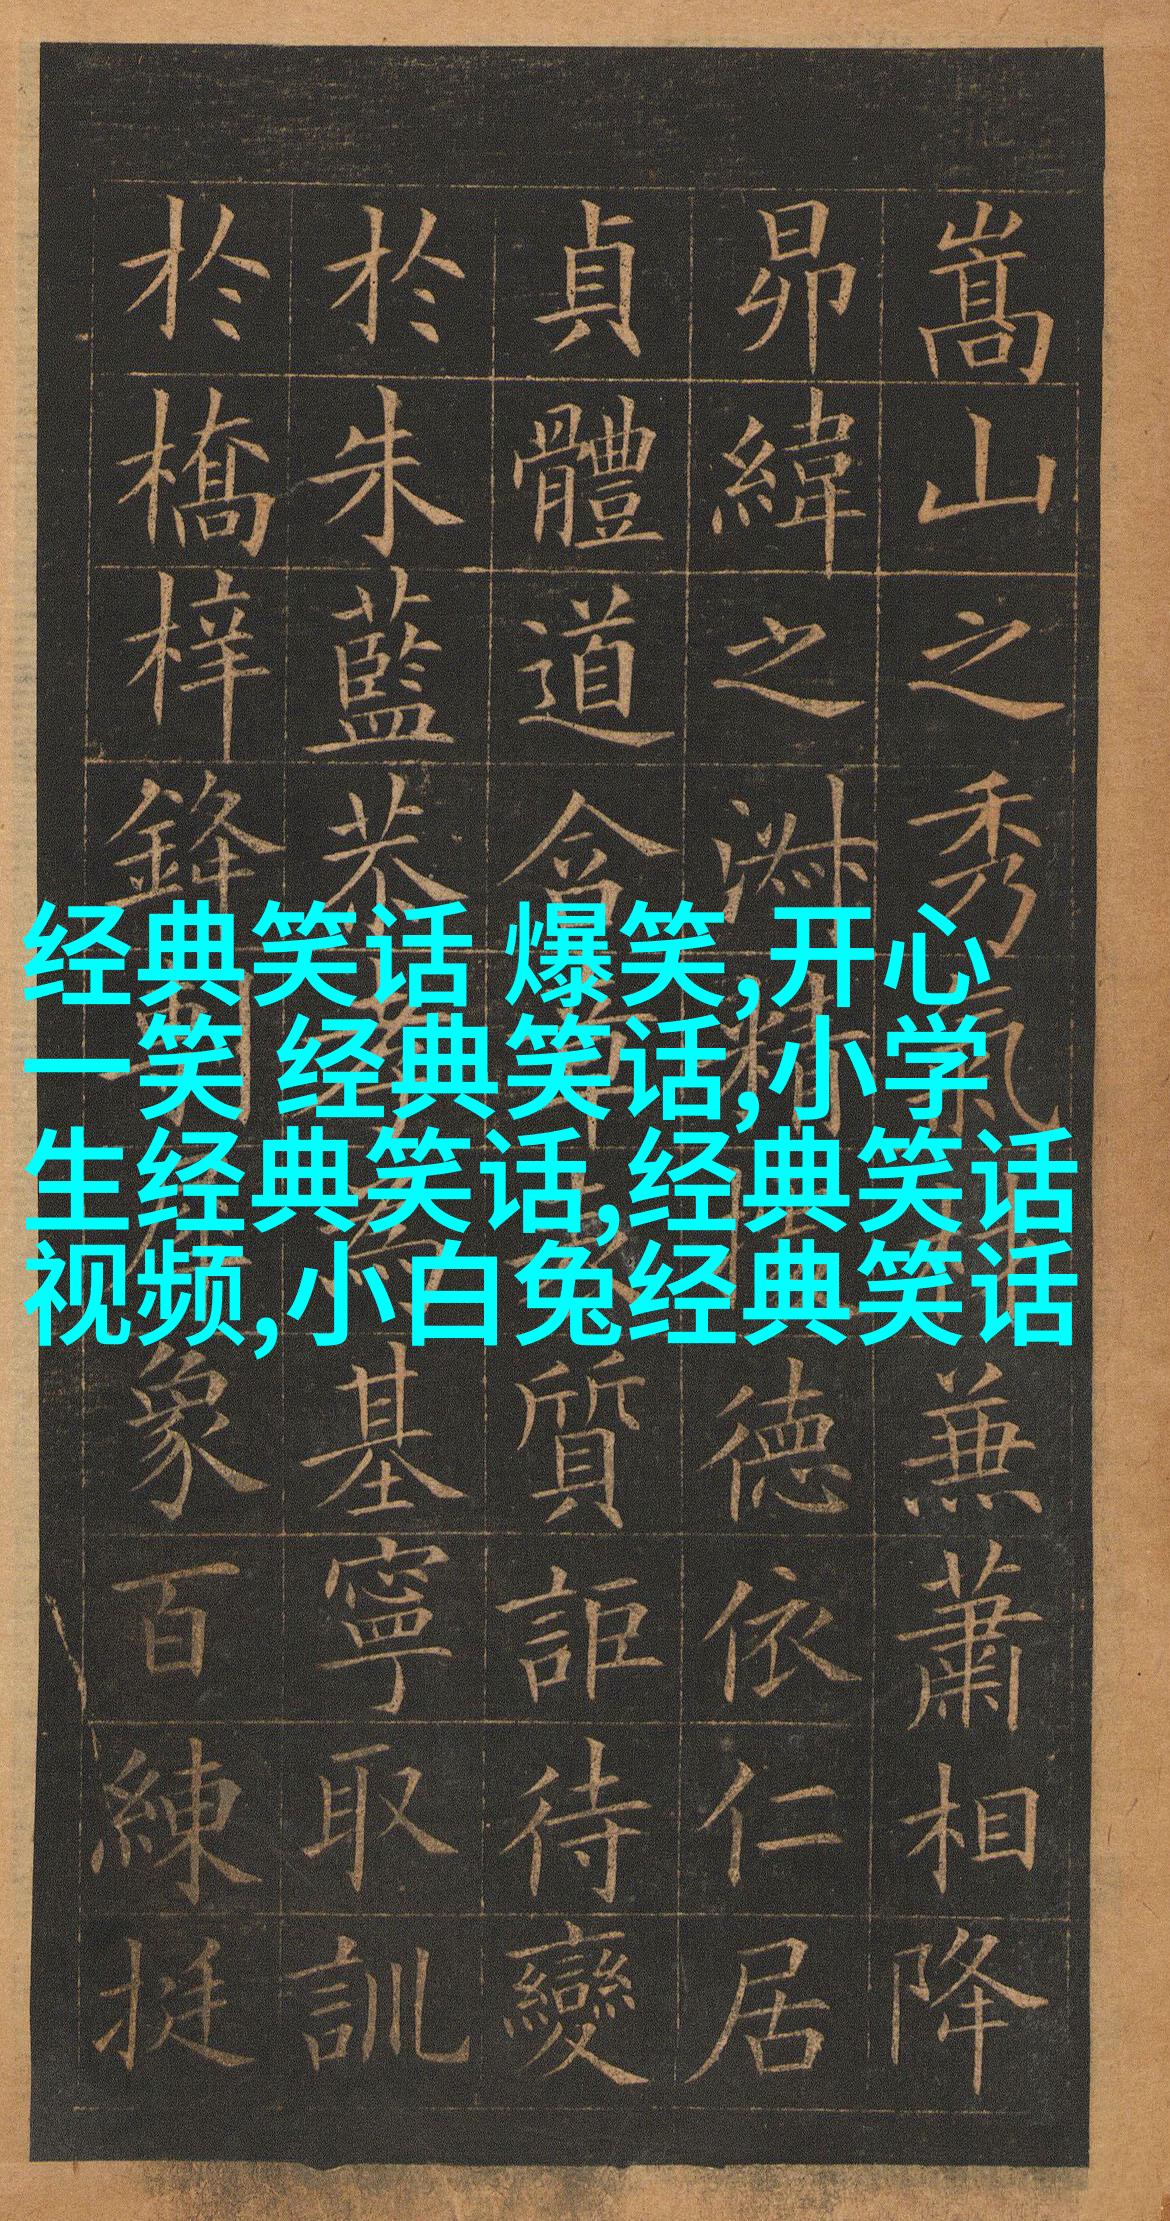 嵩山之秀氣兼蕭相降
昴緯之淑精德依仁居
貞體道含章質詎待變
於朱藍恭孝爲基寧取訓
於橋梓鋒象百練挺
经典笑话 爆笑,开心
一笑 经典笑话,小学
生经典笑话,经典笑话
视频,小白兔经典笑话